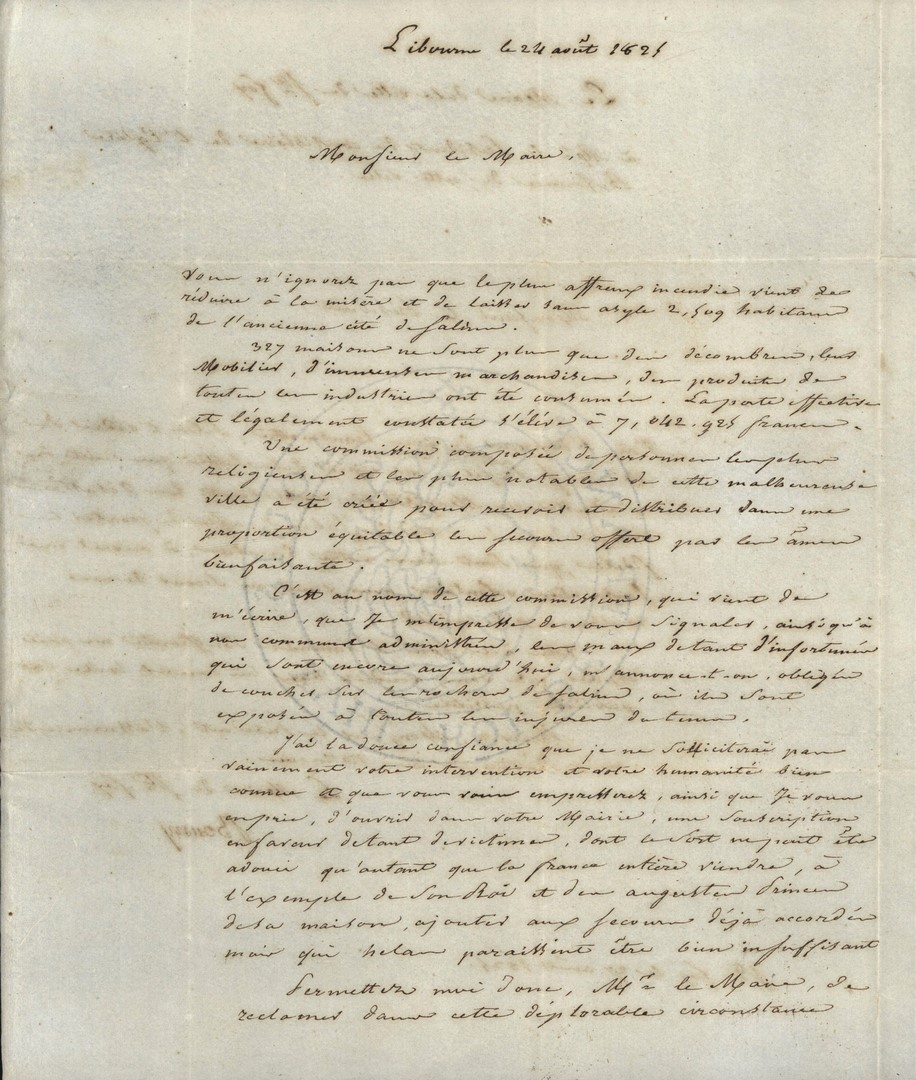 Libourne le 24 août 1825
Monsieur le Maire,
vous n'ignorez pas que le plus affreux incendie vient de
réduire à la misère et de laisser sans asyle 2,509 habitans
de l'ancienne cité de Salins.
327 maisons ne sont plus que des décombres, leur
Mobilier, d'immenses marchandises, des produits de
toutes les industries ont été consumés. La perte effective
et légalement constatée s'élève à 7,042.925 francs.
Une commission composée de personnes les plus
religieuses et les plus notables de cette malheureuse
ville à été créée pour recevoir et distribuer dans une
proportion équitable les secours offert par les âmes
bienfaisantes.
C'est au nom de cette commission, qui vient de
m'écrire, que Je m'empresse de vous signaler, ainsi qu'à
vos administrés, les maux de tant d'infortunés
qui sont encore aujourd'hui, m'annonce-t-on, obligés
de coucher sur les rochers de Salins, où ils sont
exposés à toutes les injures du tems.
J'ai la douce confiance que je ne solliciterai pas
vainement votre intervention et votre humanité bien
connue et que vous vous empresserez, ainsi que Je vous
en prie, d'ouvrir dans votre Mairie, une souscription
en faveur de tant de victimes, dont le sort ne peut être
adouci qu'autant que la france entière viendra, à
l'exemple de Son Roi et des augustes Princes
de sa maison, ajouter aux secours déjà accordés
mais qui helas paraissent être bien insuffisant
Permettez moi donc, Mr le Maire, de
reclamer dans cette déplorable circonstance